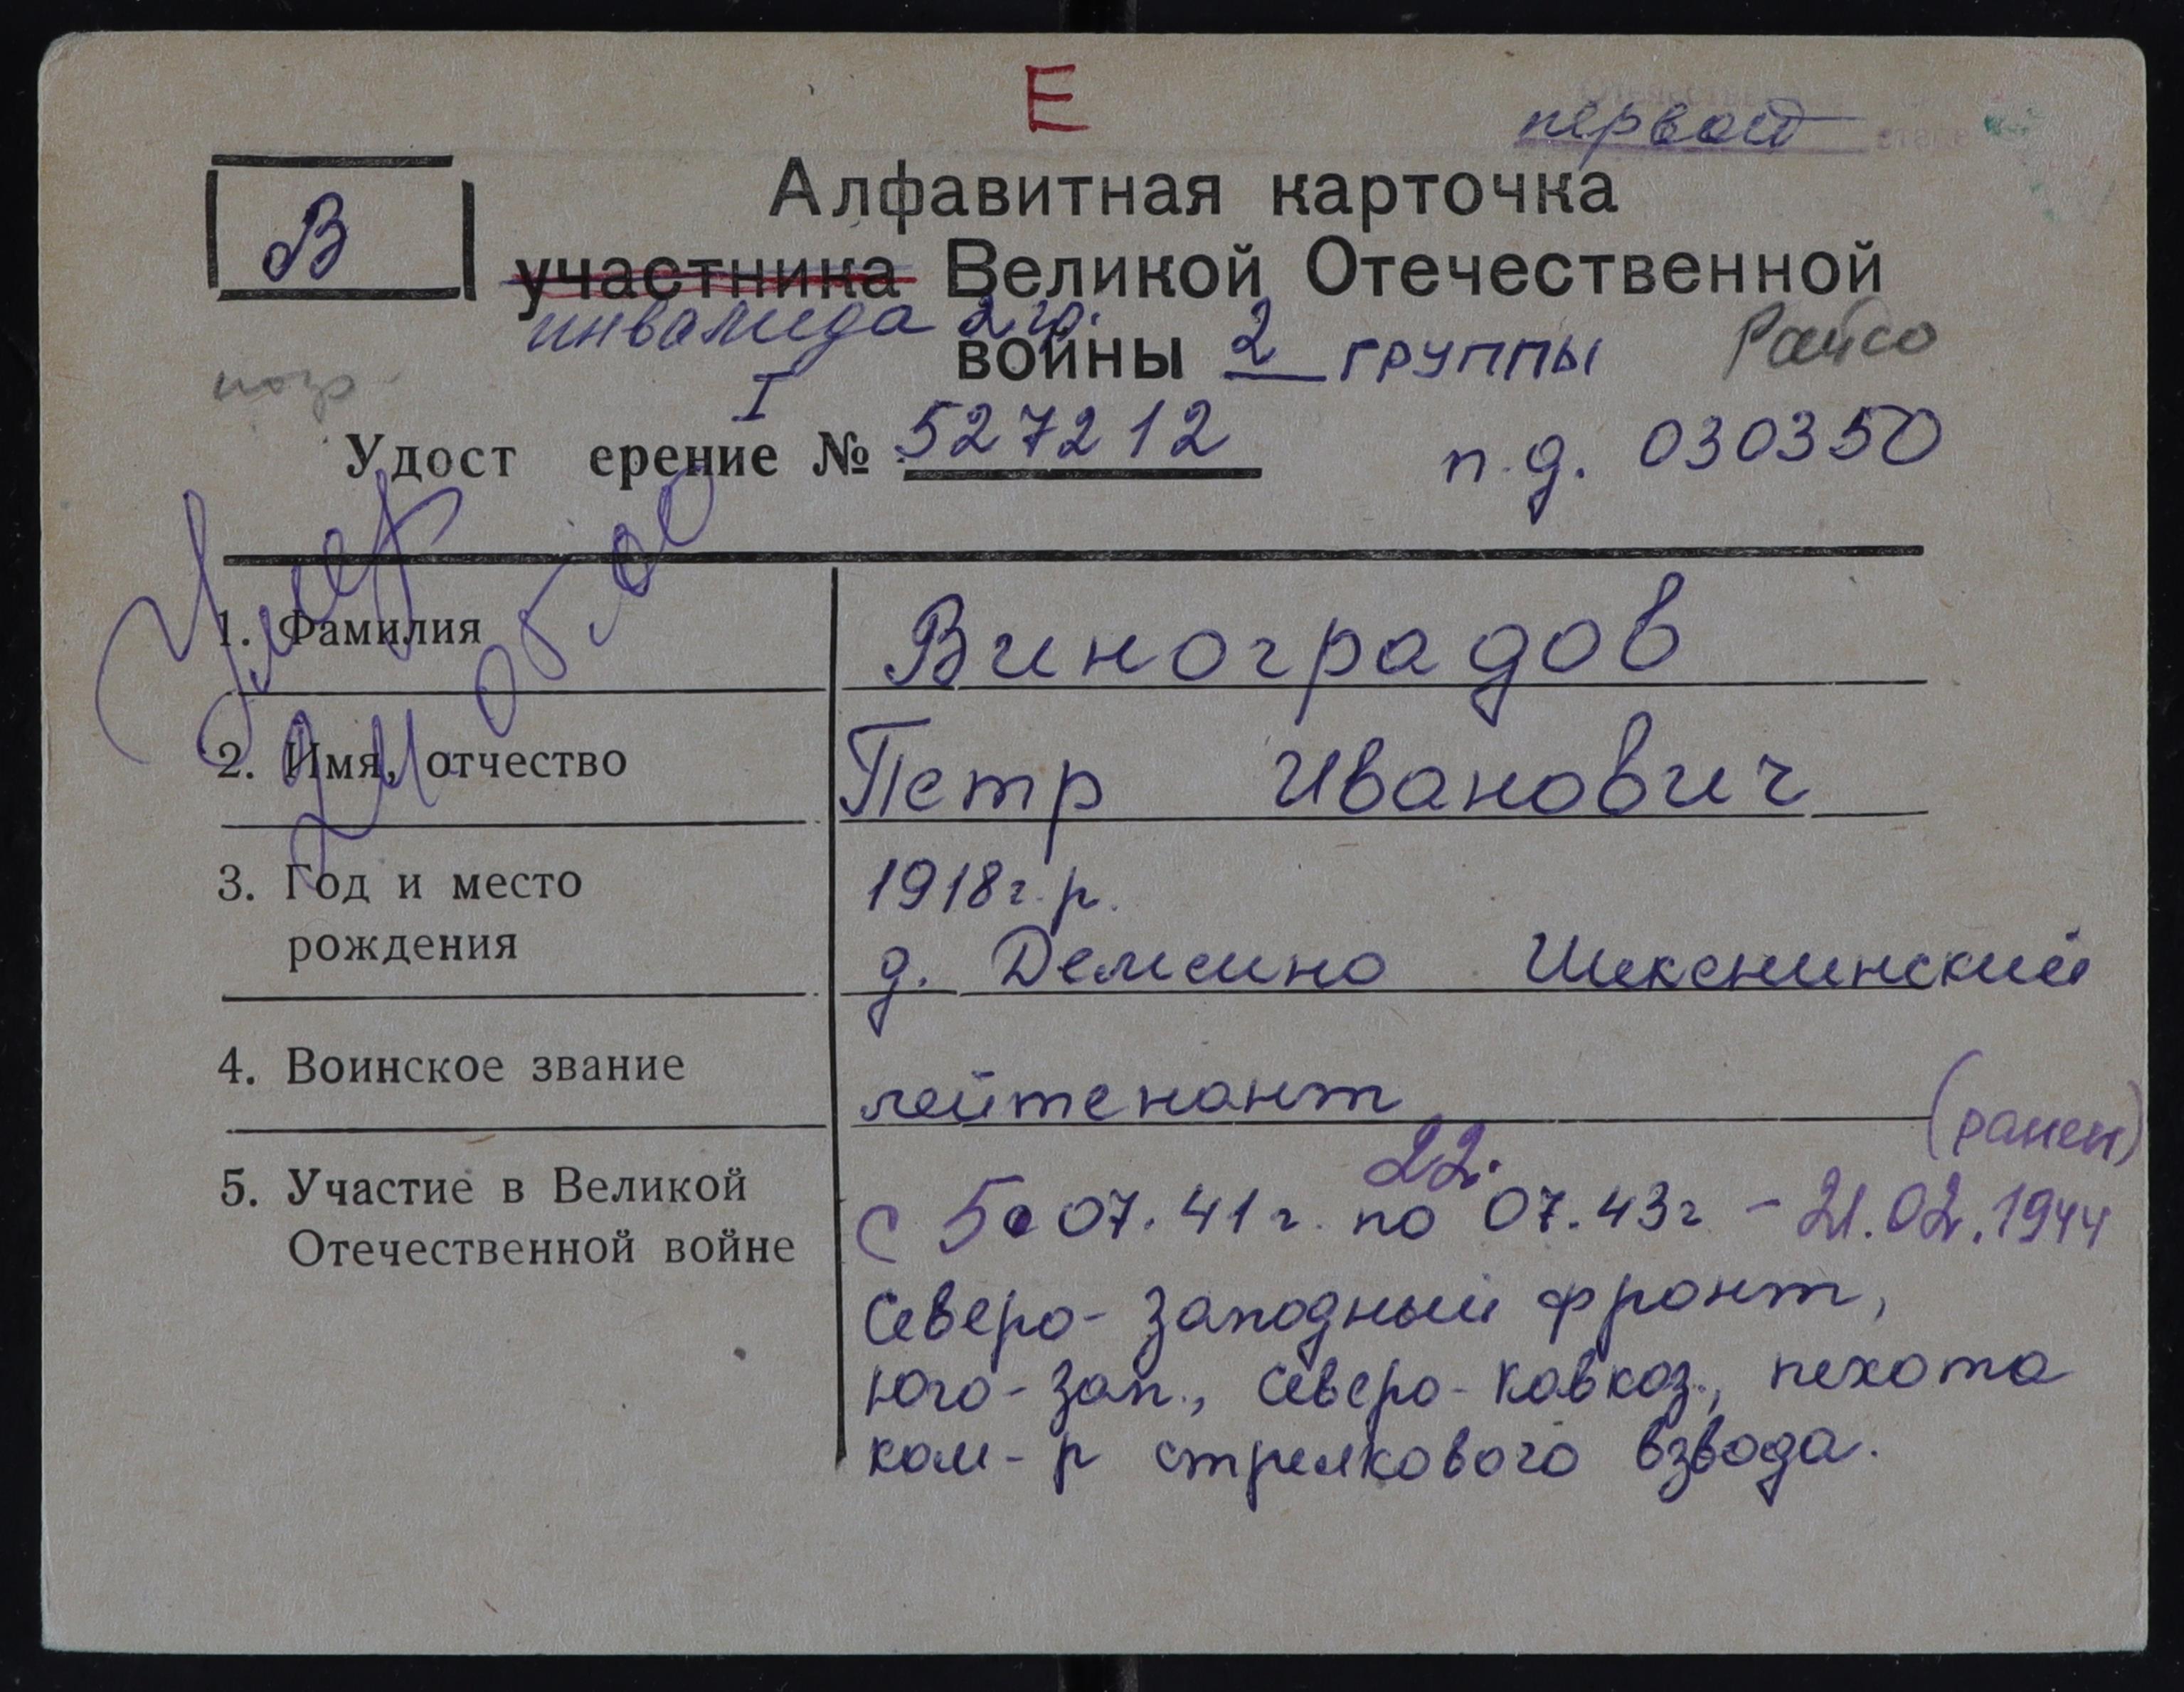 Е
первой
В
Алфавитная карточка
участника Великой Отечественной
инвалида 2 гр.
войны 2 группы Райсо
I
Удост ерение № 527212 п.д. 030350
Умер
1. Фамилия Виноградов
2. Имя, отчество Петр Иванович
3. Год и место 1918 г.р.
рождения д. Демсино Шекснинский
4. Воинское звание лейтенант (ранен)
22.
5. Участие в Великой с 5. 07.41 г. по 07.43 г - 21.02.1944
Отечественной войне
Северо-Западный фронт,
Юго-зап., Северо-Кавказ., пехота
ком-р стрелкового взвода.